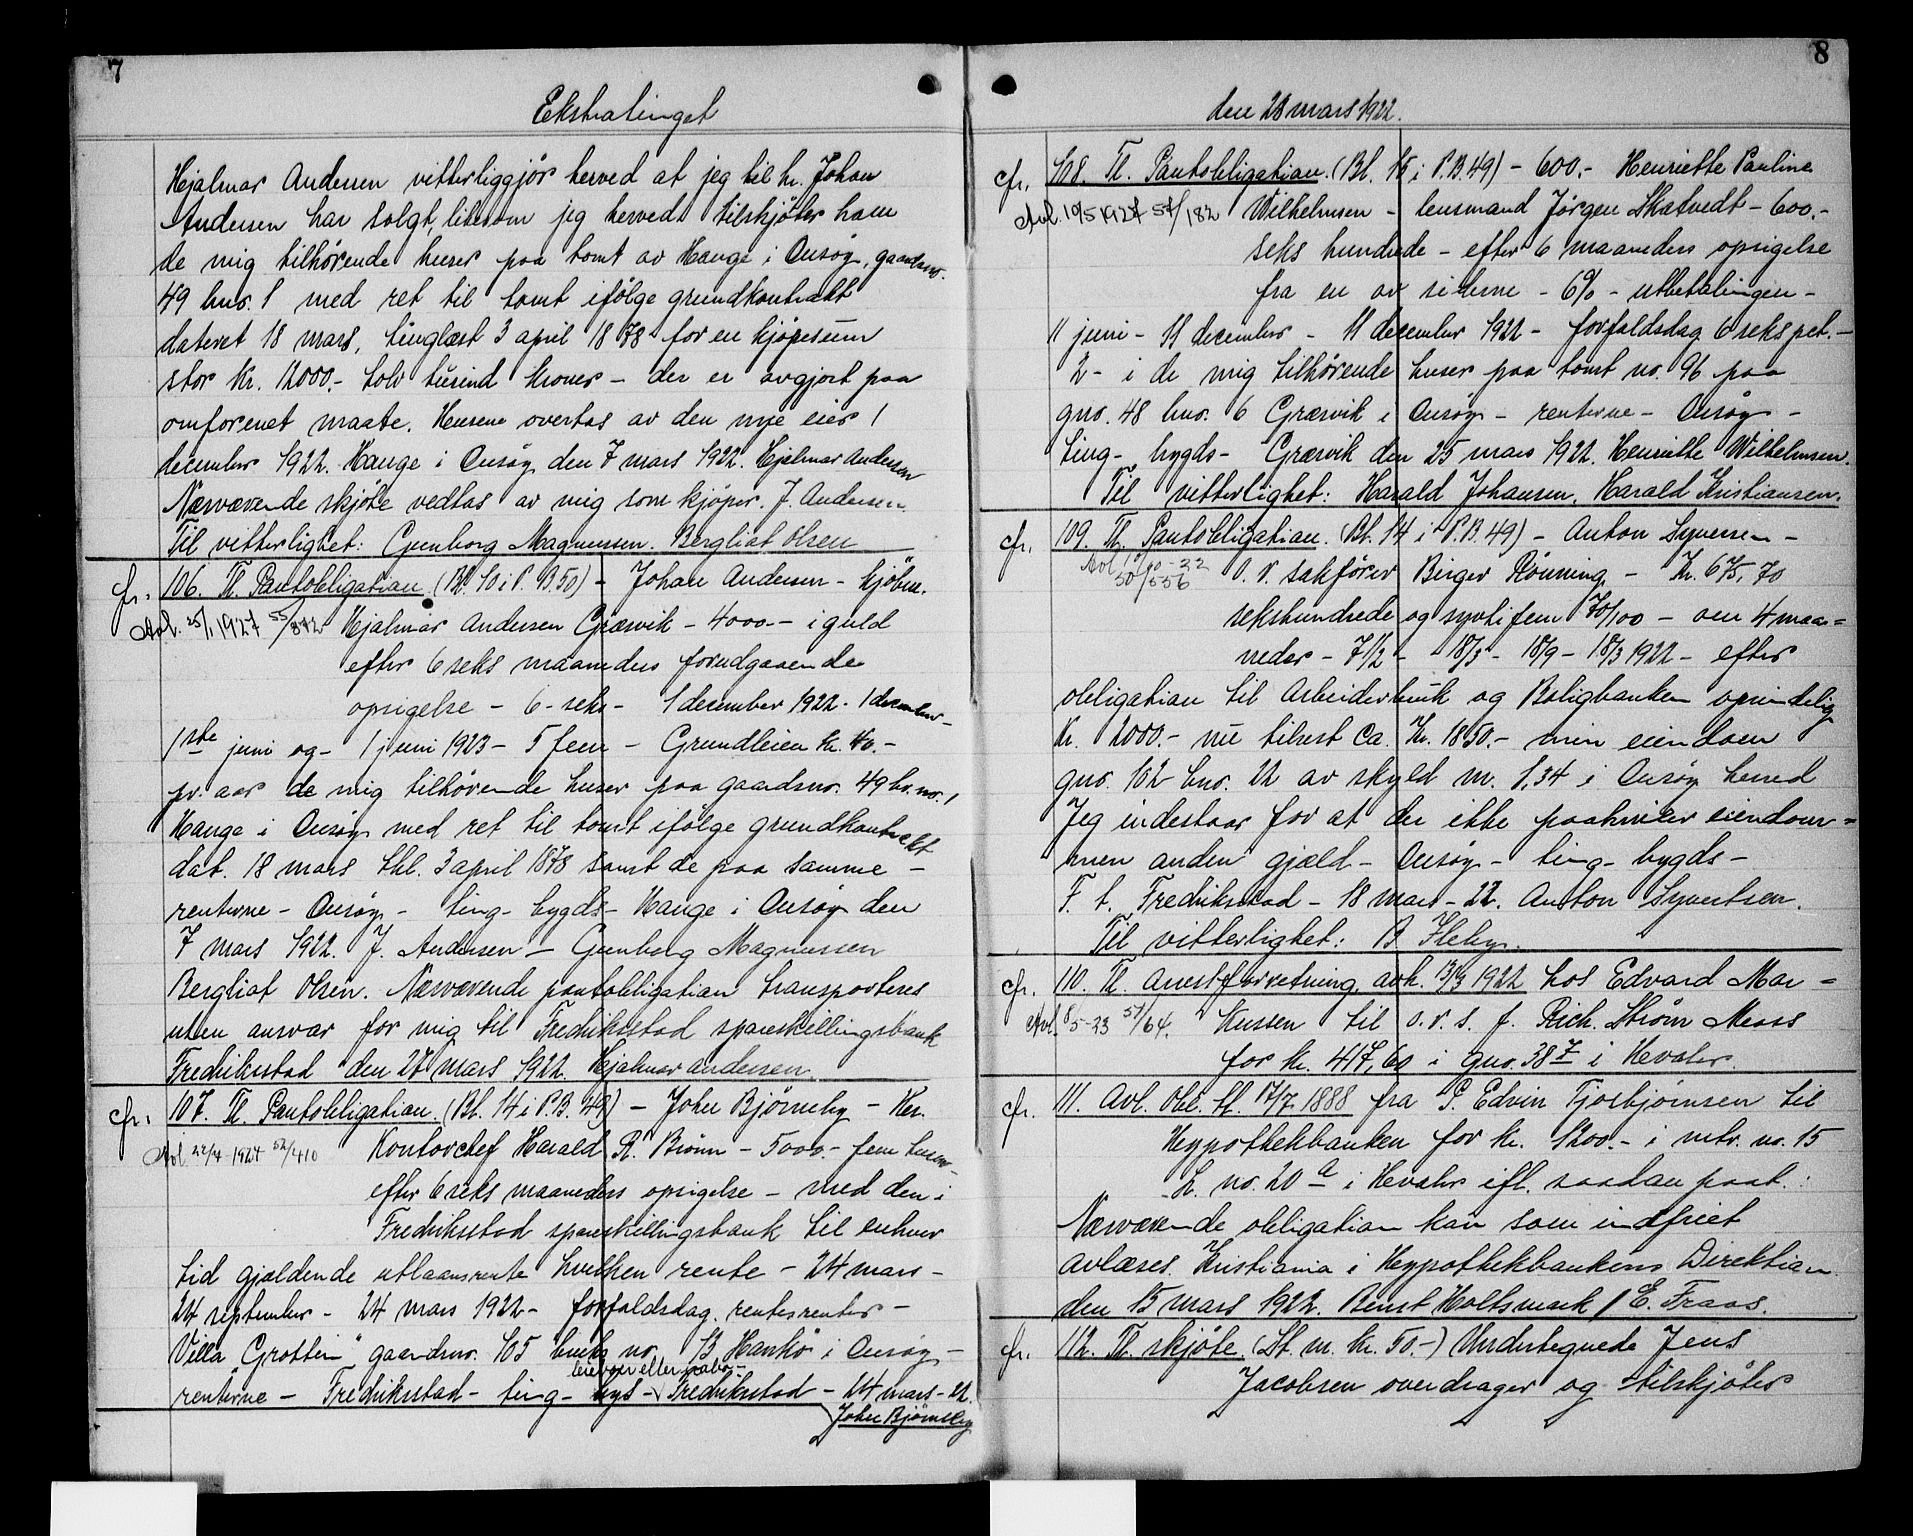 7
Ekstratinget
Hjalmar Andersen vitterliggjør herved at jeg til hr. Johan
Andersen har solgt, likesom jeg herved tilskjøter ham
de mig tilhørende huser paa tomt av Hauge i Onsøy, gaardsno.
49 bno. 1 med ret til tomt ifølge grundkontrakt
dateret 18 mars, tinglæst 3 april 1878 for en kjøpesum
stor kr. 12000.- tolv tusind kroner - der er avgjort paa
omforenet maate. Husene overtas av den nye eier 1
december 1922. Hauge i Onsøy den 7 mars 1922. Hjalmar Andersen
Nærværende skjøte vedtas av mig som kjøper. J. Andersen.
Til vitterlighet: Gunborg Magnussen. Bergliot Olsen
cfr. 106. Tl. Pantobligation. (Bl. 10 i P.B. 50) - Johan Andersen - kjøbm.
Avl. 25/1 1927 55/872 Hjalmar Andersen Græsvik - 4000.- i guld
efter 6 seks maaneders forudgaaende
opsigelse - 6 - seks - 1 december 1922. 1 december -
1ste juni og - 1 juni 1923 - 5 fem - Grundleien kr. 40.-
pr. aar de mig tilhørende huser paa gaardsno. 49 br. no. 1
Hauge i Onsøy med ret til tomt ifølge grundkontrakt
dat. 18 mars thl. 3 april 1878 samt de paa samme -
renterne - Onsøy - ting- bygds- Hauge i Onsøy den
7 mars 1922. J. Andersen - Gunborg Magnussen
Bergliot Olsen. Nærværende pantobligation transporteres
uten ansvar for mig til Fredriksstad spareskillingsbank
Fredriksstad den 27 mars 1922. Hjalmar Andersen.
cfr. 107. Tl. Pantobligation. (Bl. 14 i P.B. 49) - Johs Bjørneby - Hr.
Avl 22/4 1924 52/410 Kontorchef Harald R. Bruun - 5000.- fem tusen-
efter 6 seks maaneders opsigelse - med den i
Fredriksstad spareskillingsbank til enhver
tid gjældende utlaansrente hvilken rente - 24 mars -
24 september - 24 mars 1922 - forfaldsdag. rentesrenter -
Villa "Grotten" gaardsno. 105 bruks no. 13 Hankø i Onsøy -
renterne - Fredriksstad - ting- bys - Fredriksstad - 24 mars - 22.
Johs Bjørneby
8
den 28 mars 1922.
cfr. 108. Tl. Pantobligation. (Bl. 15 i P.B. 49) - 600.- Henriette Pauline
Avl. 10/5 1927 57/182 Wilhelmsen - lensmand Jørgen Skatvedt - 600.-
seks hundrede - efter 6 maaneders opsigelse
fra en av siderne - 6% - utbetalingen -
11 juni - 11 december - 11 december 1922 - forfaldsdag 6 seks pct. -
2 - i de mig tilhørende huser paa tomt no. 96 paa
gno. 48 bno. 6 Græsvik i Onsøy - renterne - Onsøy -
ting- bygds- Græsvik den 25 mars 1922. Henriette Wilhelmsen.
Til vitterlighet: Harald Johansen. Harald Kristiansen.
cfr. 109. Tl. Pantobligation. (Bl. 14 i P.B. 49) - Anton Syversen -
Avl 50/556 o. r. sakfører Birger Rønning - Kr. 675,70
sekshundrede og syvtifem 70/100 - om 4 maa=
neder - 7 1/2 - 18/3 - 18/9 - 18/3 1922 - efter
obligation til Arbeiderbruk og Boligbanken oprindelig
Kr. 2000.- nu tilrest ca. Kr. 1850.- min eiendom
gno. 102 bno. 22 av skyld m. 1,34 i Onsøy herred
Jeg indestaar for at der ikke paahviler eiendom=
men anden gjæld - Onsøy - ting- bygds -
F. t. Fredriksstad - 18 mars - 22. Anton Syvertsen.
Til vitterlighet: B Fleby.
cfr. 110. Tl. arrestforretning avh. 13/3 1922 hos Edvard Mar=
Avl. 8/5-23 51/64. kussen til o. r. s. f. Rich. Strøm Moss
for kr. 417,60 i gno. 38 7 i Hvaler.
cfr. 111. Avl. Obl. tl. 17/7 1888 fra P. Edvin Tjosbjørnsen til
Hypothekbanken for kr. 1200.- i mtr. no. 15
L. no. 20 a i Hvaler ifl. saadan paat.:
Nærværende obligation kan som indfriet
avlæses. Kristiania i Hypothekbankens Direktion
den 15 mars 1922. Bernt Holtsmark / E. Fraas.
cfr. 112. Tl. skjøte. (St. m. kr. 50.-) Undertegnede Jens
Jacobsen overdrager og tilskjøter